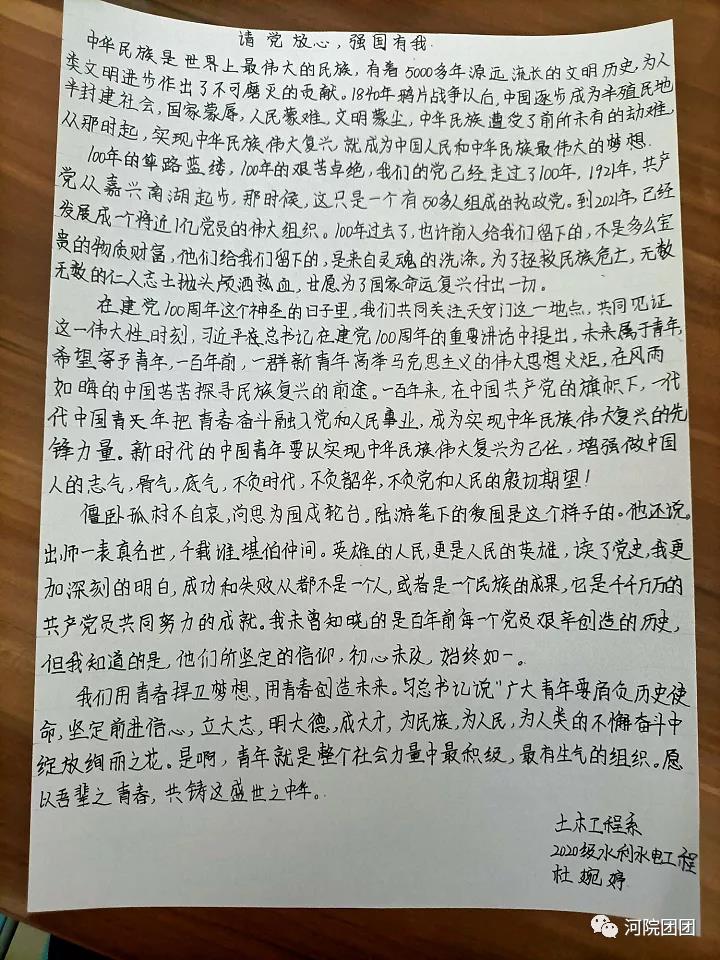 请党放心，强国有我
中华民族是世界上最伟大的民族，有着5000多年源远流长的文明历史，为人
类文明进步作出了不可磨灭的贡献。1840年鸦片战争以后，中国逐步成为半殖民地
半封建社会，国家蒙辱，人民蒙难，文明蒙尘，中华民族遭受了前所未有的劫难，
从那时起，实现中华民族伟大复兴，就成为中国人民和中华民族最伟大的梦想．
100年的筚路蓝缕，100年的艰苦卓绝，我们的党已经走过了100年，1921年，共产
党从嘉兴南湖起步，那时候，这只是一个有50多人组成的执政党。到2021年，已经
发展成一个将近1亿党员的伟大组织。100年过去了，也许前人给我们留下的，不是多么宝
贵的物质财富，他们给我们留下的，是来自灵魂的洗涤。为了拯救民族危亡，无数
无数的仁人志士抛头颅洒热血，甘愿为了国家命运复兴付出一切。
在建党100周年这个神圣的日子里，我们共同关注天安门这一地点，共同见证
这一伟大性时刻，习近平总书记在建党100周年的重要讲话中提出，未来属于青年，
希望寄予青年，一百年前，一群新青年高举马克思主义的伟大思想火炬，在风雨
如晦的中国苦苦探寻民族复兴的前途。一百年来，在中国共产党的旗帜下，一代
代中国青年把青春奋斗融入党和人民事业，成为实现中华民族伟大复兴的先
锋力量。新时代的中国青年要以实现中华民族伟大复兴为己任，增强做中国
人的志气，骨气，底气，不负时代，不负韶华，不负党和人民的殷切期望！
僵卧孤村不自哀，尚思为国戍轮台。陆游笔下的爱国是这个样子的。他还说。
出师一表真名世，千载谁堪伯仲间。英雄的人民，更是人民的英雄，读了党史，我更
加深刻的明白，成功和失败从都不是一个人，或者是一个民族的成果，它是千千万万的
共产党员共同努力的成就。我未曾知晓的是百年前每一个党员艰辛创造的历史，
但我知道的是，他们所坚定的信仰，初心未改，始终如一。
我们用青春捍卫梦想，用青春创造未来。习总书记说“广大青年要肩负历史使
命，坚定前进信心，立大志，明大德，成大才，为民族，为人民，为人类的不懈奋斗中
绽放绚丽之花。是啊，青年就是整个社会力量中最积级，最有生气的组织。愿
以吾辈之青春，共铸这盛世之中华。
土木工程系
2020级水利水电工程
杜婉婷
河院团团